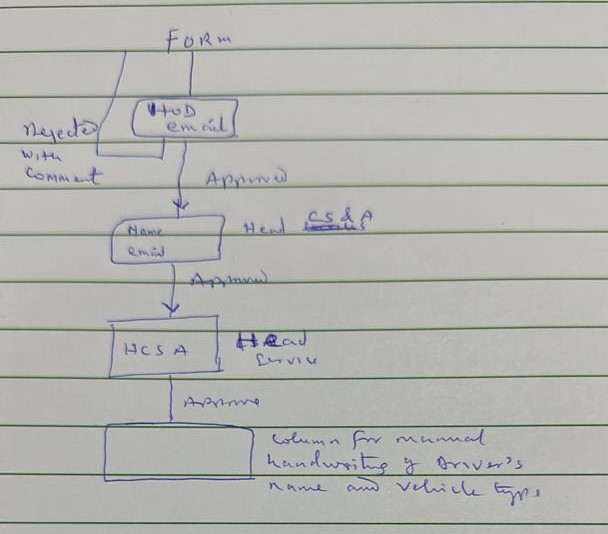 FORM
HOD
email
Rejected
with
Comment
Approved
Name
email
Head CS & A
Approved
HCSA
Head
Service
Approve
Column for manual
handwriting of Driver's
name and vehicle type